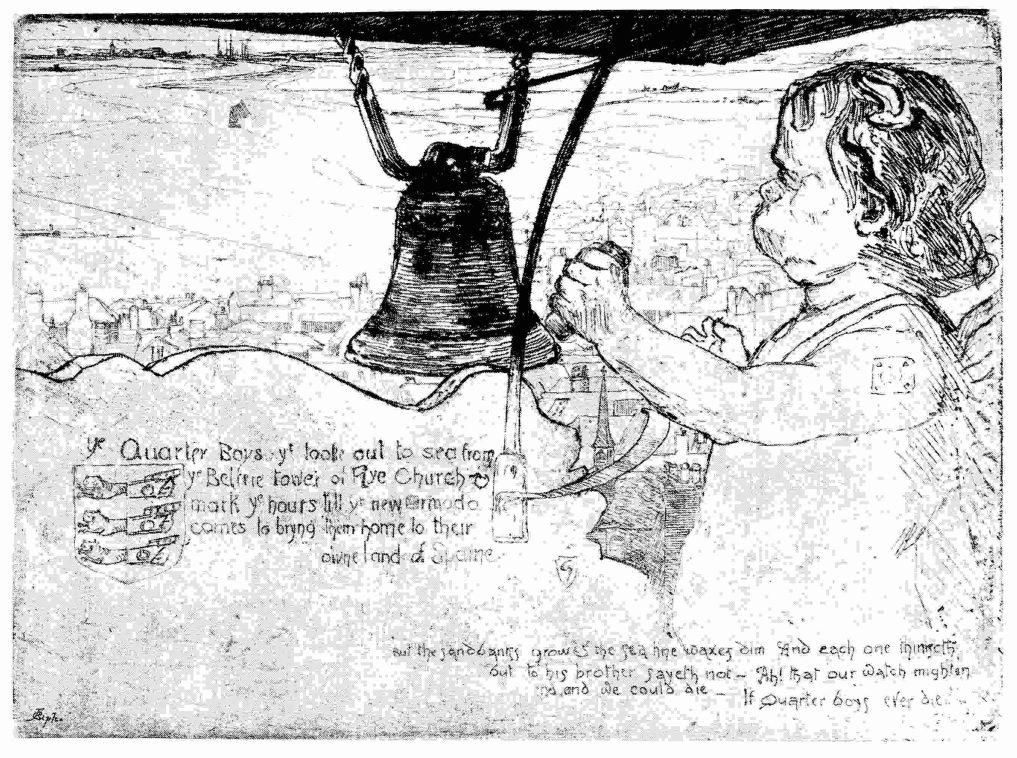 yᵉ Quarter Boys yᵗ look out to sea from
yᵉ Belfrie tower of Rye Church &
mark yᵉ hours till yᵉ new armada
comes to bryng them home to their
owne land of Spaine
19
But the sandbanks growes the sea line waxes dim And each one thinketh
but to his brother sayeth not – Ah! that our watch might en
nd and we could die – If Quarter boys ever die.